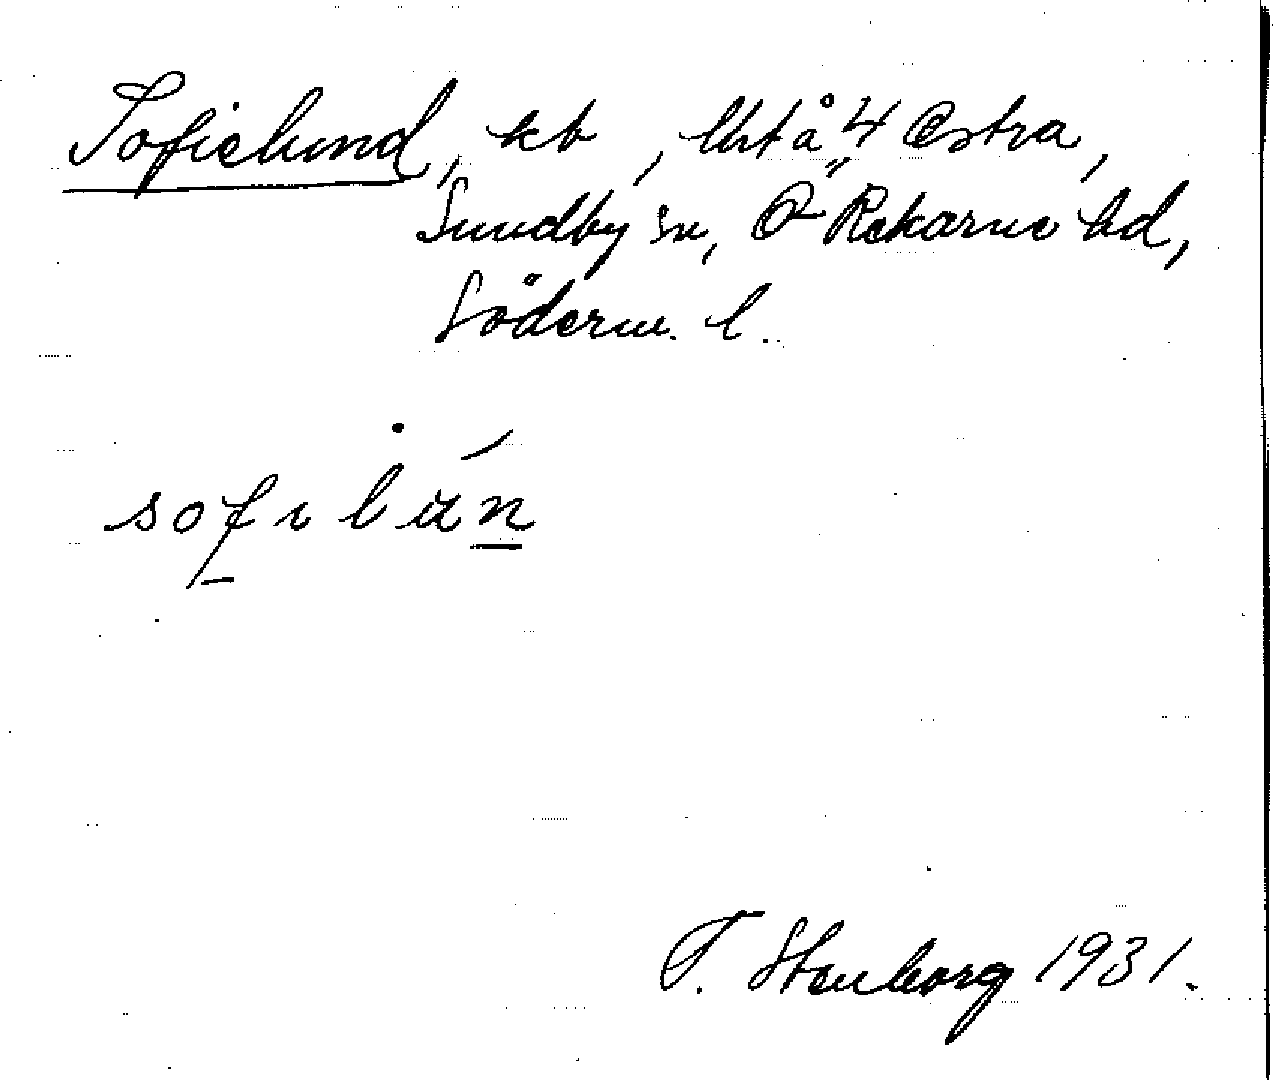 Sofielund, kb, Urtå 4 Östra,
Sundby sn, Ö Rekarne hd,
Söderm. l.
sofilún
F. Stenborg 1931.